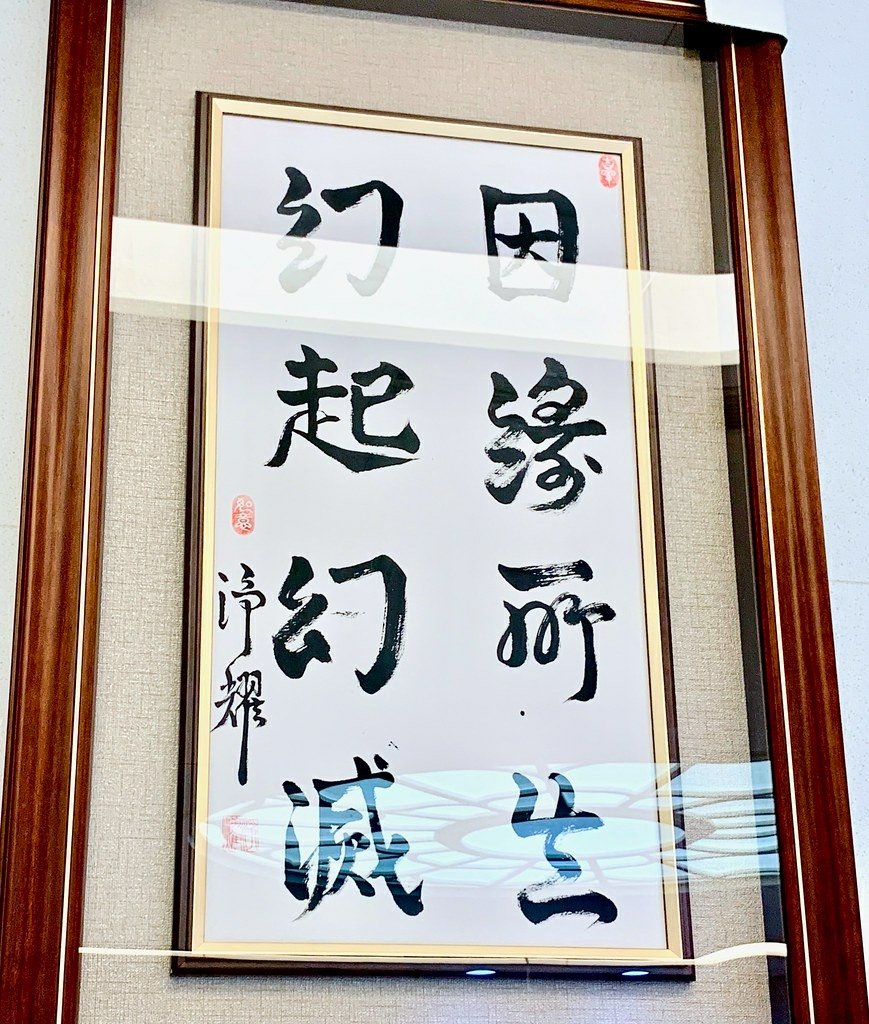 因緣所生
幻起幻滅
如意
淨耀